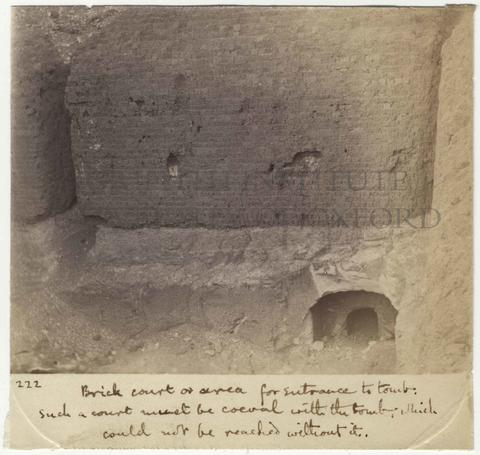 GRIFFITH INSTITUTE
UNIVERSITY OF OXFORD
222
Brick court or area for entrance to tomb:
Such a court must be coeval with the tomb; which
could not be reached without it.